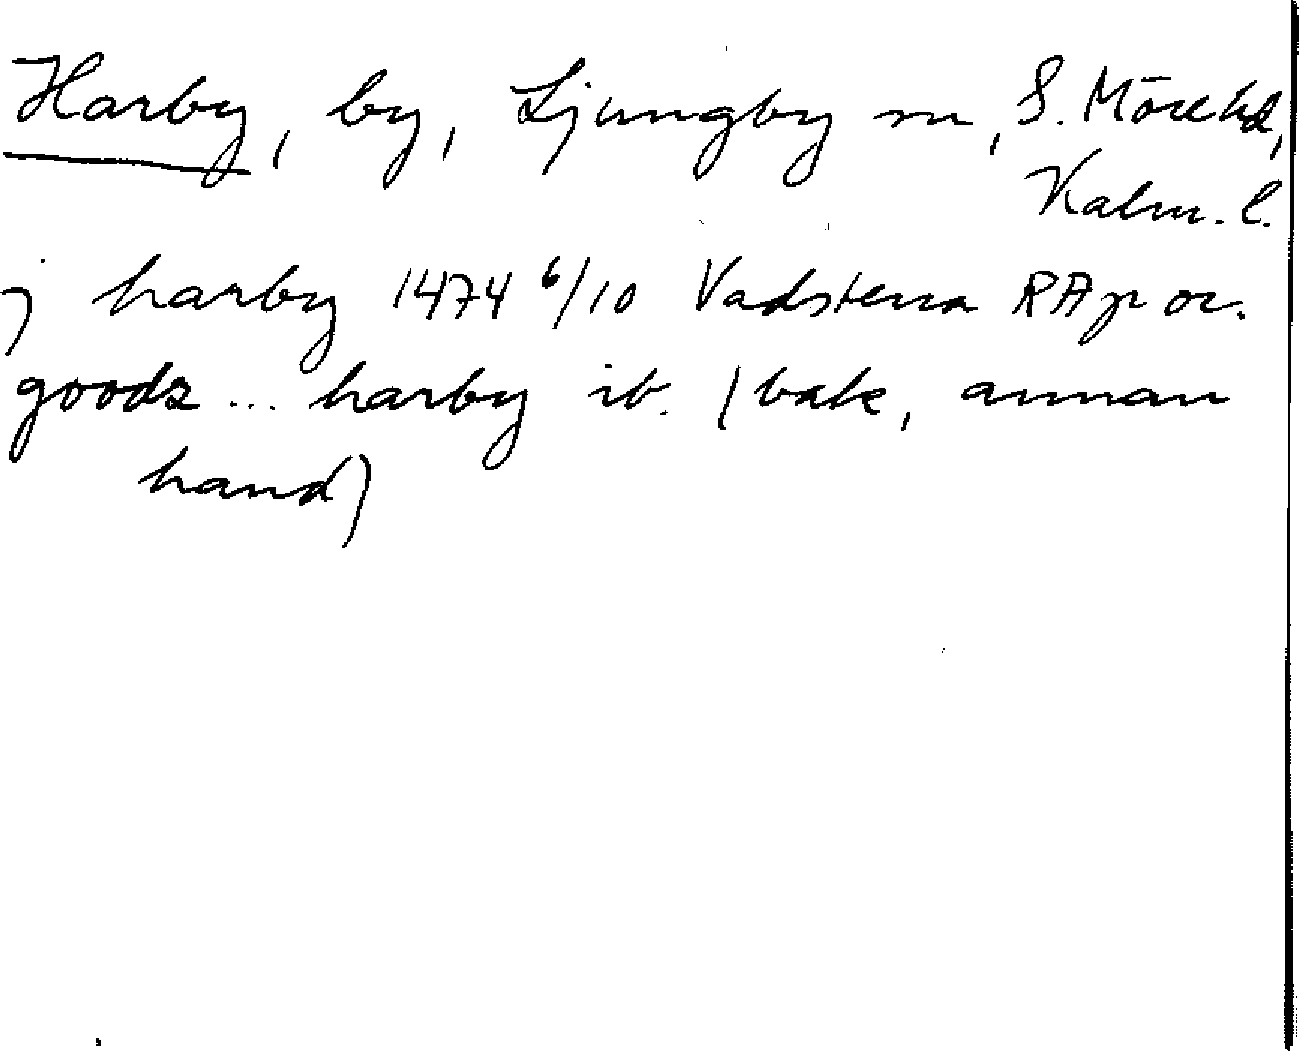 Harby, by, Ljungby sn, S. Möre hd,
Kalm. l.
j harby 1474 6/10 Vadstena RAp or.
goodz ... harby ib. (bak, annan
hand)